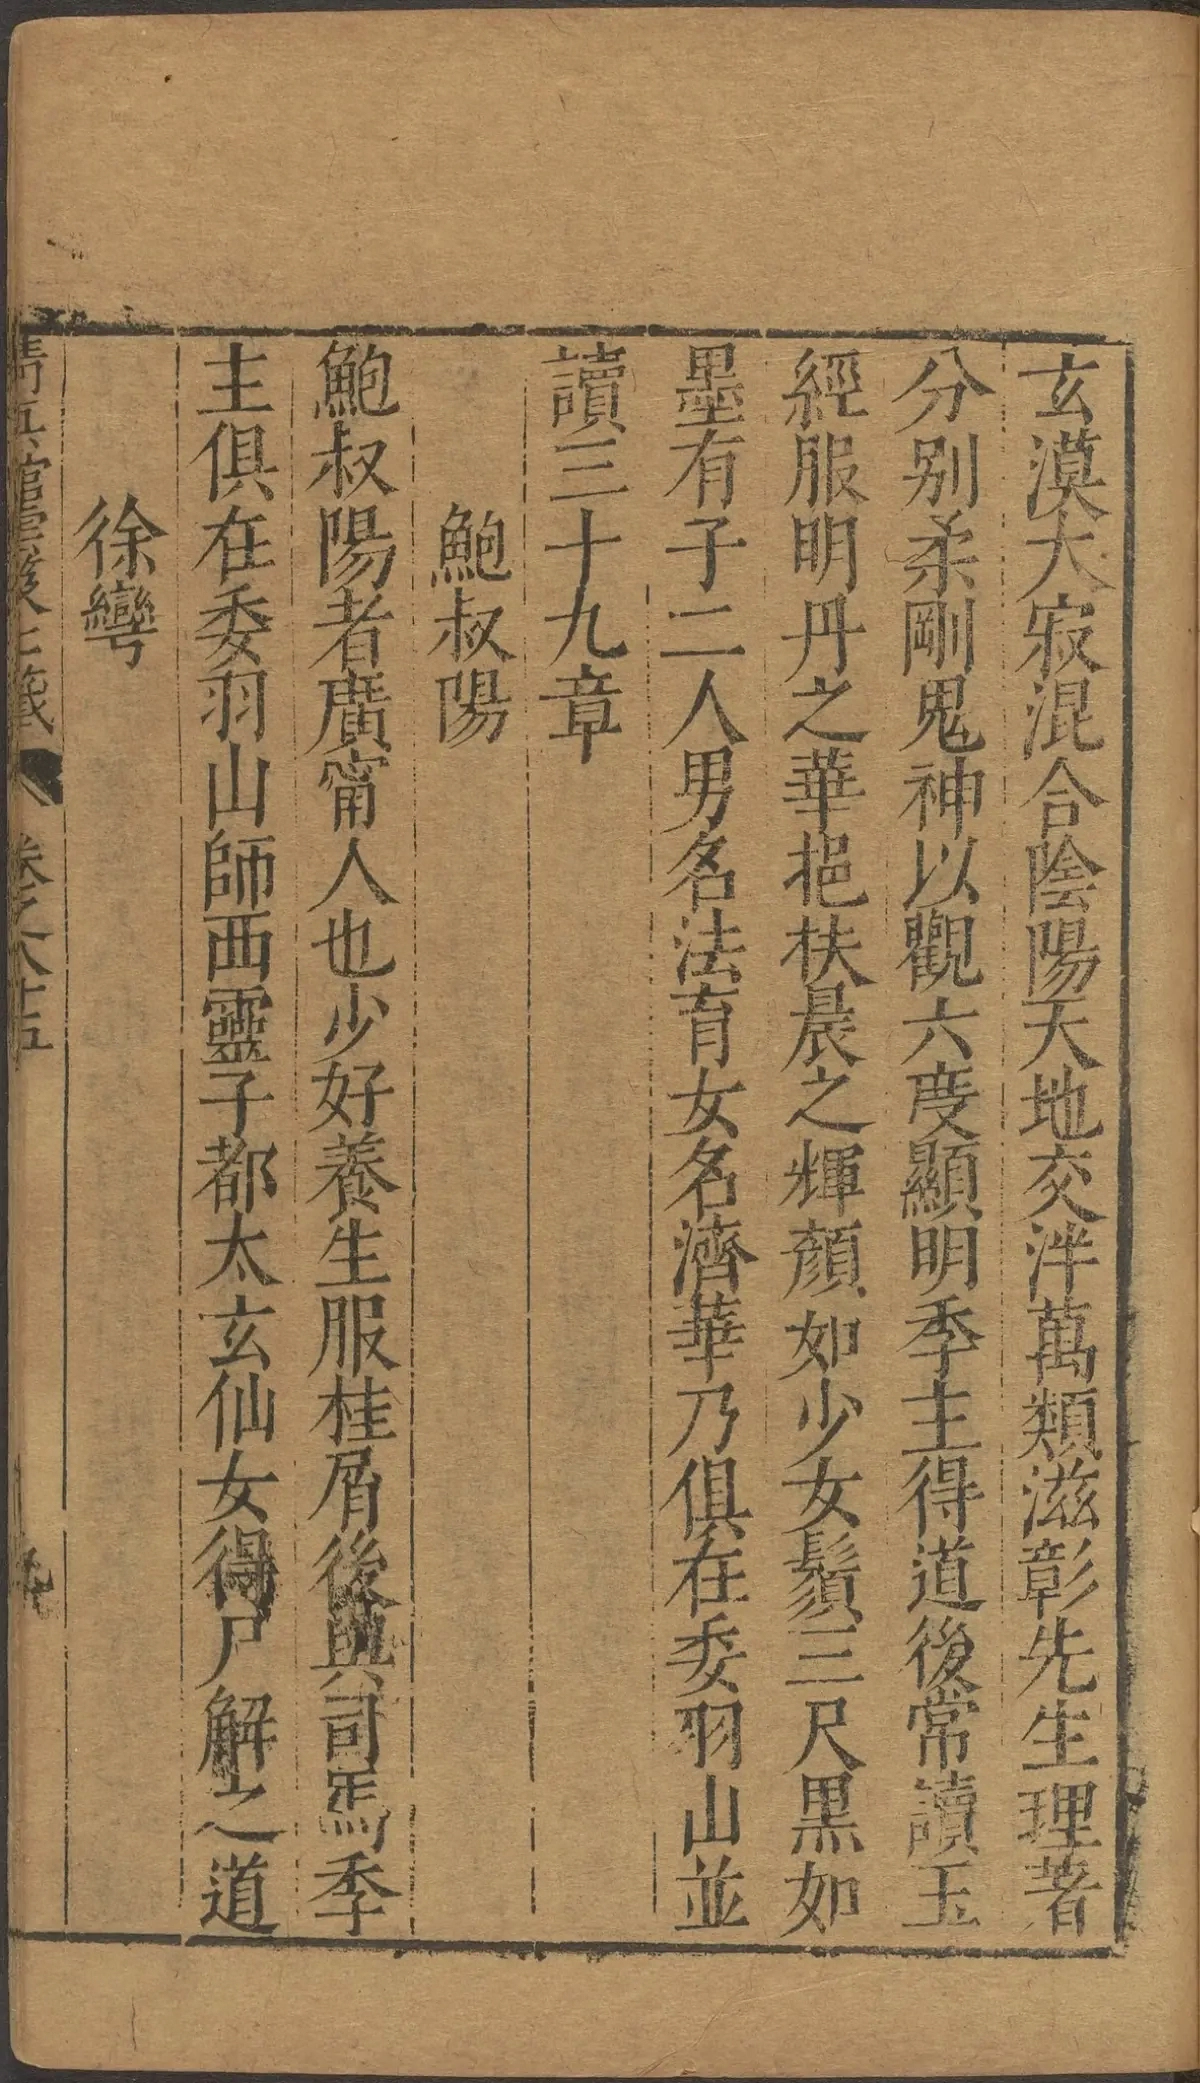 玄漠大寂混合陰陽天地交泮萬類滋彰先生理著
分别柔剛鬼神以觀六度顯明季主得道後常讀玉
經服明丹之華挹扶晨之輝顏如少女鬚三尺黒如
墨有子二人男名法育女名濟華乃俱在委羽山並
讀三十九章
鮑叔陽
鮑叔陽者廣甯人也少好養生服桂屑後與司馬季
主俱在委羽山師西靈子都太玄仙女得尸解之道
徐彎